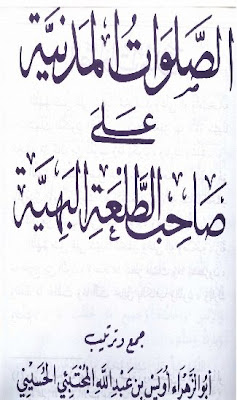 الصَّلَوَاتُ المَدَنِيَّة
عَلَى
صَاحِبِ الطَّلْعَةِ البَهِيَّة
جمع وترتيب
أبو الزهراء أويس بن عبد الله المجتبى الحسيني